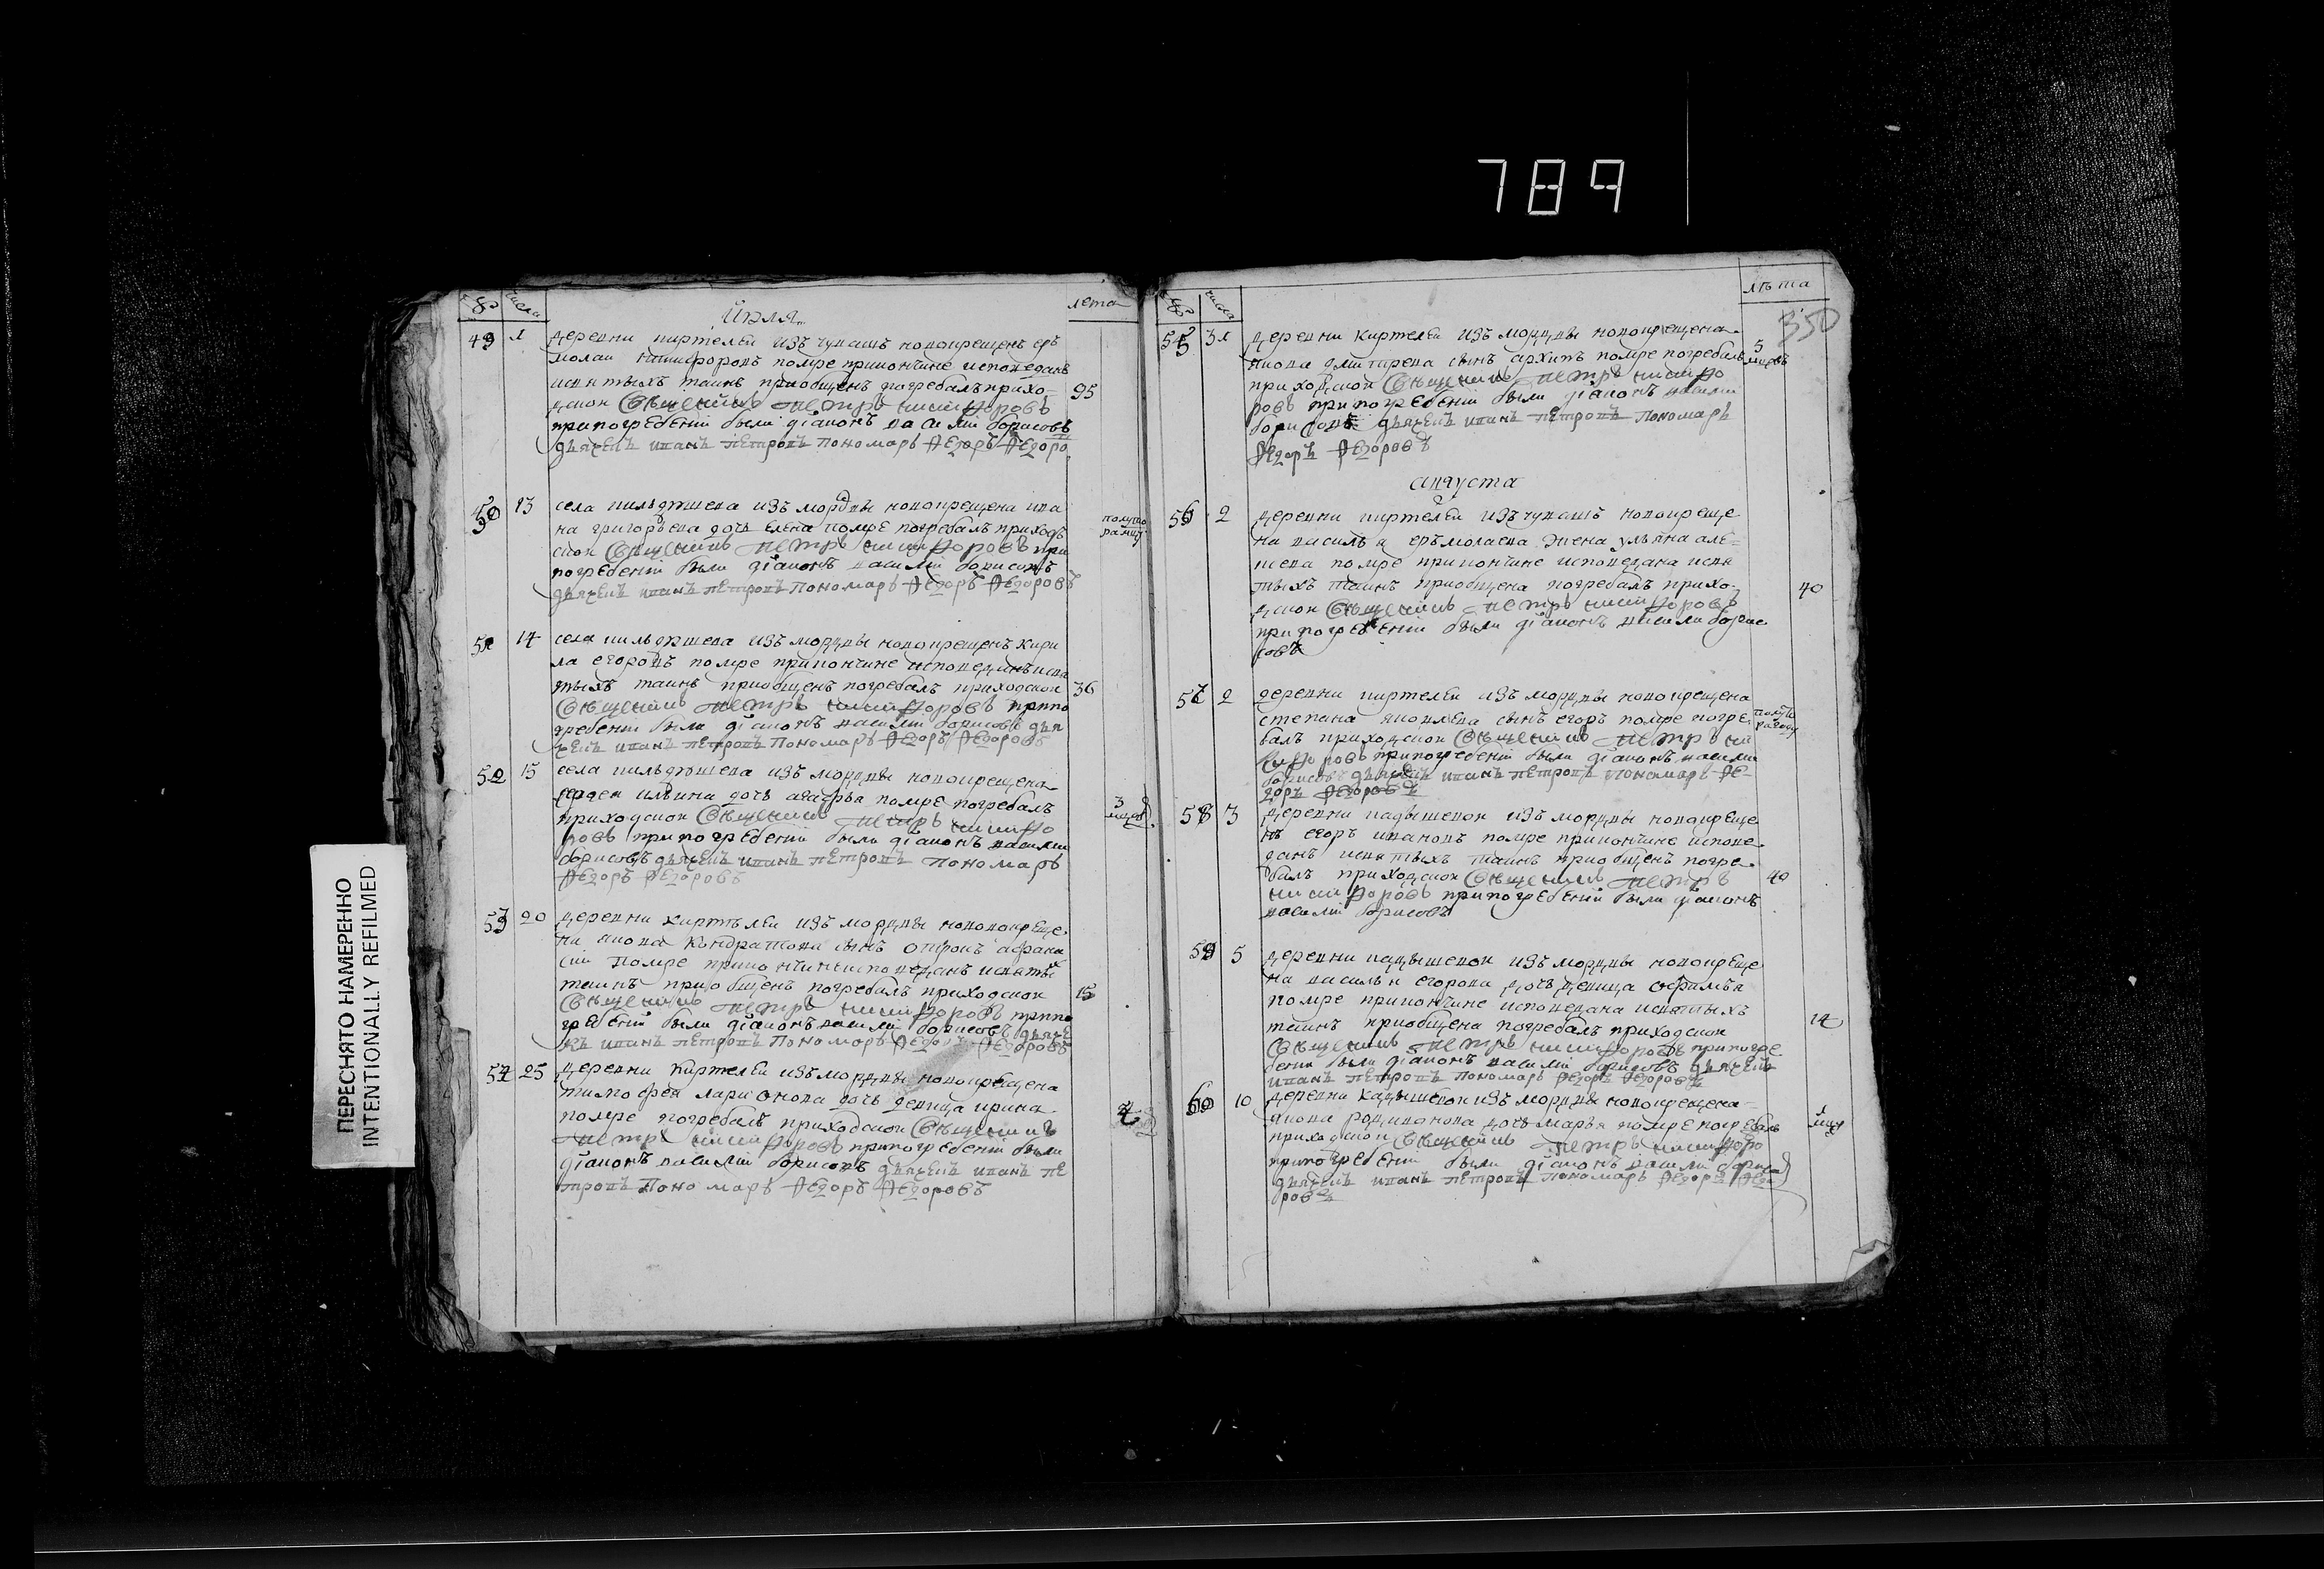 789
ПЕРЕСНЯТО НАМЕРЕННО
INTENTIONALLY REFILMED
№ числа лета
Июля
49 1 деревни киртелей изъ чувашъ новокрещенъ ер
молай никифоровъ помре прикончине исповеданъ
исвятыхъ таинъ приобщенъ погребалъ прихо- 95
дской Священникъ Петръ никифоровъ
припогребенiи были дiаконъ василiй борисовъ
дьячекъ иванъ петровъ пономарь Ѳедоръ Ѳедоро
50 13 села изъ мордвы новокрещена ива
на григорьева дочь елена помре погребалъ приход полуто
ской Священникъ Петръ никифоровъ при
погребенiи были дiаконъ василiй борисовъ
дьячекъ иванъ петровъ пономарь Ѳедоръ Ѳедоровъ
51 14 села изъ мордвы новокрещенъ кири
ла егоровъ помре прикончине исповеданъ исвя
тыхъ таинъ приобщенъ погребалъ приходской 36
Священникъ Петръ никифоровъ припо
гребенiи были дiаконъ василiй борисовъ дья
чекъ иванъ петровъ пономарь Ѳедоръ Ѳедоровъ
52 15 села изъ мордвы новокрещена
сергея ильина дочь агафья помре погребалъ 3
приходской Священникъ Петръ никифо
ровъ припогребенiи были дiаконъ василiй
борисовъ дьячекъ иванъ петровъ пономарь
Ѳедоръ Ѳедоровъ
53 20 деревни киртелей изъ мордвы новокреще
на якова кондратова сынъ отрокъ афана
сий помре прикончине исповеданъ исвятых
таинъ приобщенъ погребалъ приходской 15
Священникъ Петръ никифоровъ припо
гребенiи были дiаконъ василiй борисовъ дьяче
къ иванъ петровъ пономарь Ѳедоръ Ѳедоровъ
54 25 деревни киртелей изъ мордвы новокрещена
тимофея ларионова дочь девица ирина
помре погребалъ приходской Священникъ
Петръ никифоровъ припогребенiи были
дiаконъ василiй борисовъ дьячекъ иванъ пе
тровъ пономарь Ѳедоръ Ѳедоровъ
№ числа лѣта
350
55 31 деревни киртелей изъ мордвы новокрещена 5
якова дмитрева сынъ архипъ помре погребалъ
приходской Священникъ Петръ никифо
ровъ припогребенiи были дiаконъ василiй
борисовъ дьячекъ иванъ петровъ пономарь
Ѳедоръ Ѳедоровъ
августа
56 2 деревни киртелей изъ чувашъ новокреще
на василья ермолаева жена ульяна але=
помре прикончине исповедана исвя
тыхъ таинъ приобщена погребалъ прихо- 40
дской Священникъ Петръ никифоровъ
припогребенiи были дiаконъ василей борис
совъ
57 2 деревни киртелей изъ мордвы новокрещена
степана яковлева сынъ егоръ помре погре
балъ приходской Священникъ Петръ ни
кифоровъ припогребенiи были дiаконъ василий
борисовъ дьячекъ иванъ петровъ пономарь Ѳе
доръ Ѳедоровъ
58 3 деревни кадышевой изъ мордвы новокреще
нъ егоръ ивановъ помре прикончине испове
данъ исвятыхъ таинъ приобщенъ погре
балъ приходской Священникъ Петръ 40
никифоровъ припогребенiи были дiаконъ
василiй борисовъ
59 5 деревни кадышевой изъ мордвы новокреще
на василья егорова дочь девица
помре прикончине исповедана исвятыхъ
таинъ приобщена погребалъ приходской 14
Священникъ Петръ никифоровъ припогре
бенiи были дiаконъ василiй борисовъ дьячекъ
иванъ петровъ пономарь Ѳедоръ Ѳедоровъ
60 10 деревни кадышевой изъ мордвы новокрещена
родивонова дочь марья помре погребалъ 1
приходской Священникъ Петръ никифоро
припогребенiи были дiаконъ василiй борисо
дьячекъ иванъ петровъ пономарь Ѳедоръ Ѳедо
ровъ